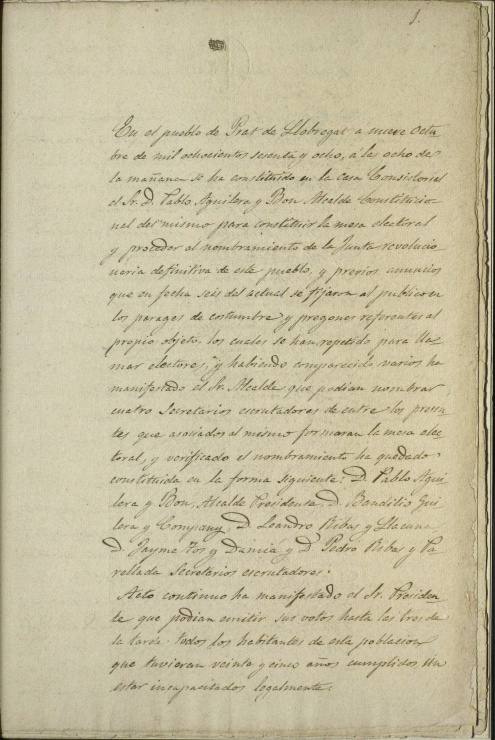 1.
En el pueblo de Prat de Llobregat a nueve Octu
bre de mil ochocientos sesenta y ocho, á las ocho de
la mañana se ha constituido en la Casa Consistorial
el Sr. D. Pablo Aguilera y Bou Alcalde Constitucio
nal del mismo para constituir la mesa electoral
y proceder al nombramiento de la Junta revolucio
naria definitiva de este pueblo, y prévios anuncios
que en fecha seis del actual se fijaron al publico en
los parages de costumbre y pregones referentes al
propio objeto, los cuales se han repetido para lla=
mar electores, y habiendo comparecido varios ha
manifestado el Sr. Alcalde que podian nombrar
cuatro Secretarios escrutadores de entre los presen
tes que asociados al mismo formaran la mesa elec
toral, y verificado el nombramiento ha quedado
constituida en la forma siguiente: D. Pablo Agui
lera y Bou, Alcalde Presidente, D. Baudilio Gui
lera y Company, D. Leandro Ribas y Llacuna,
D. Jayme y D. Pedro Ribas y Pa
rellada Secretarios escrutadores.
Acto continuo ha manifestado el Sr. Presiden
te que podian emitir sus votos hasta las tres de
la tarde todos los habitantes de esta poblacion
que tuvieran veinte y cinco años cumplidos sin
estar incapacitados legalmente.